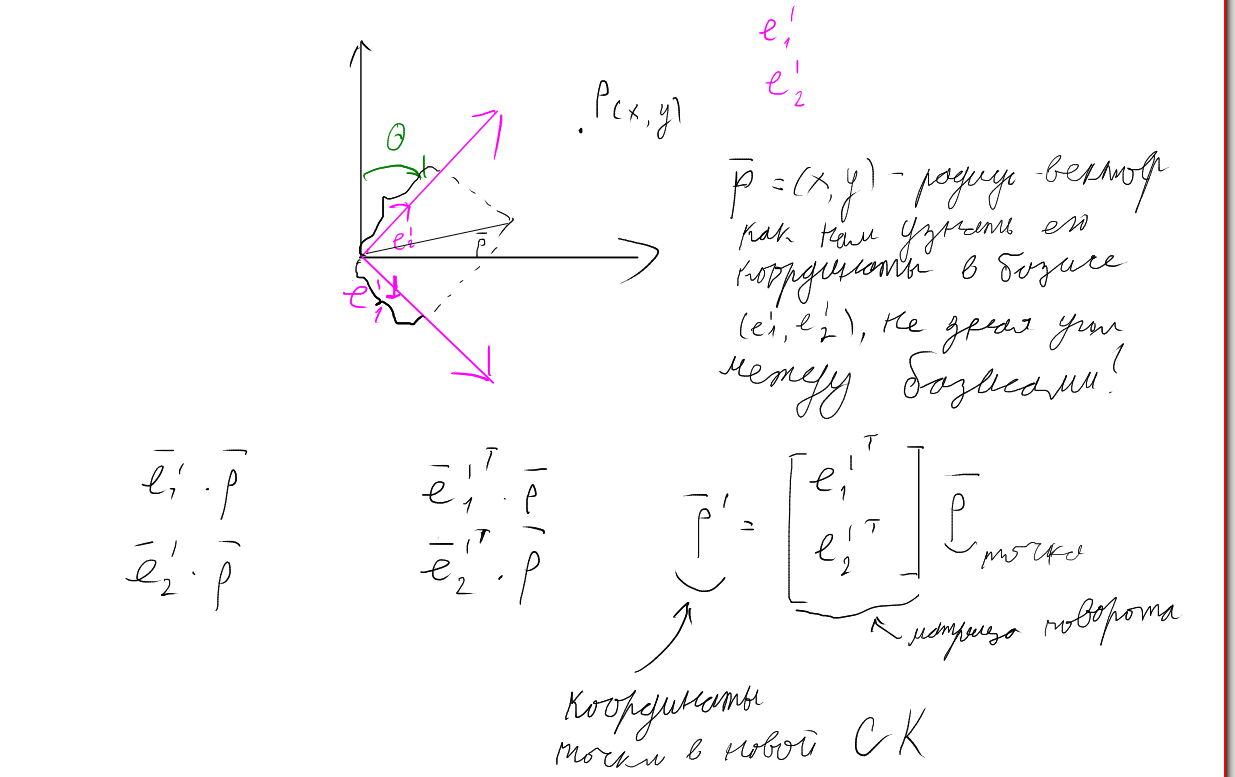 e₁'
e₂'
P(x, y)
Θ
e₂'
p̄
e₁'
p̄ = (x, y) - радиус-вектор
как нам узнать его
координаты в базисе
(e₁', e₂'), не зная угол
между базисами?
ē₁' · p̄
ē₂' · p̄
ē₁'ᵀ · p̄
ē₂'ᵀ · p̄
p̄' = [e₁'ᵀ e₂'ᵀ] p̄
точка
матрица поворота
координаты
точки в новой СК